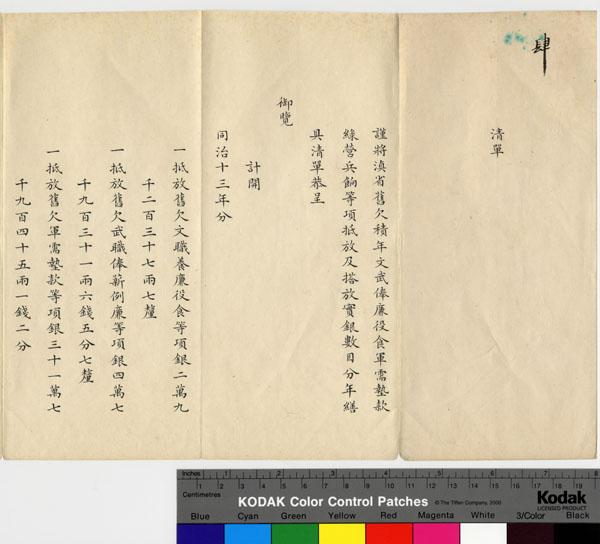 肆
清單
謹將滇省舊欠積年文武俸廉役食軍需墊款
綠營兵餉等項抵放及搭放實銀數目分年繕
具清單恭呈
御覽
計開
同治十三年分
一抵放舊欠文職養廉役食等項銀二萬九
千二百三十七兩七釐
一抵放舊欠武職俸薪例廉等項銀四萬七
千九百三十一兩六錢五分七釐
一抵放舊欠軍需墊款等項銀三十一萬七
千九百四十五兩一錢二分
Inches 1 2 3 4 5 6 7 8
Centimetres 1 2 3 4 5 6 7 8 9 10 11 12 13 14 15 16 17 18 19
KODAK Color Control Patches © The Tiffen Company, 2000 Kodak
LICENSED PRODUCT
Blue Cyan Green Yellow Red Magenta White 3/Color Black